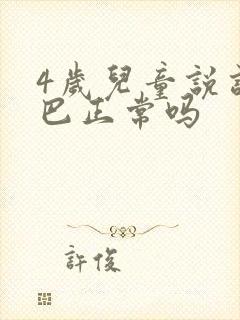 4歲兒童說
巴正常吗
許俊